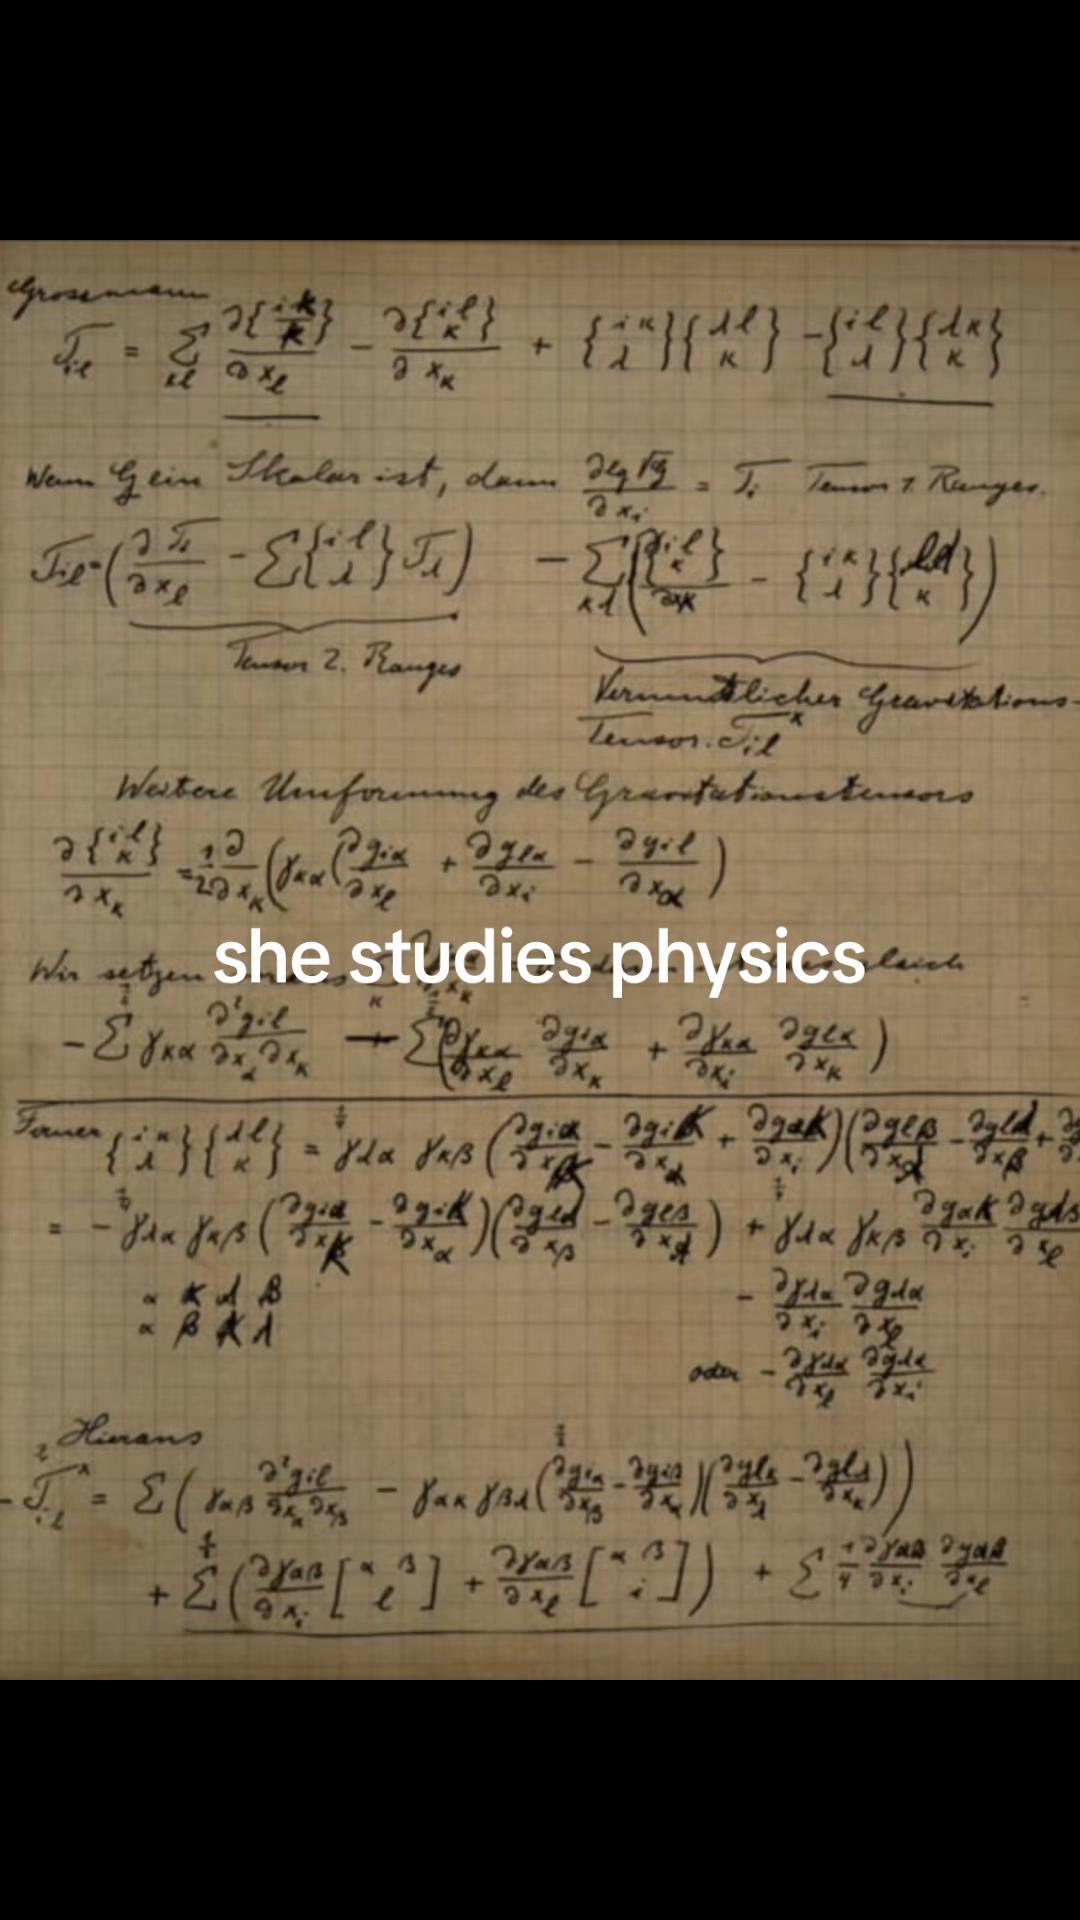 Grossmann
T_il = Σ_κl ∂{i κ / κ}/∂x_l − ∂{i l / κ}/∂x_κ + {i κ / λ}{λ l / κ} − {i l / λ}{λ κ / κ}
Wenn G ein Skalar ist, dann ∂lg√G/∂x_i = T_i Tensor 1. Ranges.
T_il = (∂T_i/∂x_l − Σ{i l / λ} T_λ) − Σ_κλ (∂{i l / κ}/∂x_κ − {i κ / λ}{λ l / κ})
Tensor 2. Ranges
Vermutlicher Gravitations-
Tensor. T_il^x
Weitere Umformung des Gravitationstensors
∂{i l / κ}/∂x_κ = 1/2 ∂/∂x_κ (γ_κα (∂g_iα/∂x_l + ∂g_lα/∂x_i − ∂g_il/∂x_α)
she studies physics
Wir setzen gleich
− Σ γ_κα ∂²g_il/∂x_α∂x_κ Σ(∂γ_κα/∂x_l ∂g_iα/∂x_κ + ∂γ_κα/∂x_i ∂g_lα/∂x_κ)
Ferner {i κ / λ}{λ l / κ} = 1/4 γ_λα γ_κβ (∂g_iα/∂x_κ − ∂g_iκ/∂x_α + ∂g_ακ/∂x_i)(∂g_lβ/∂x_λ − ∂g_lλ/∂x_β +
= − 1/4 γ_λα γ_κβ (∂g_iα/∂x_κ − ∂g_iκ/∂x_α)(∂g_lλ/∂x_β − ∂g_lβ/∂x_λ) + 1/4 γ_λα γ_κβ ∂g_ακ/∂x_i ∂g_λβ/∂x_l
α κ λ β
α β κ λ
− ∂γ_λα/∂x_i ∂g_λα/∂x_l
oder − ∂γ_λα/∂x_l ∂g_λα/∂x_i
Hieraus
− 2 T_il^x = Σ(γ_αβ ∂²g_il/∂x_α∂x_β − γ_ακ γ_βλ (∂g_iα/∂x_β − ∂g_iβ/∂x_α)(∂g_lκ/∂x_λ − ∂g_lλ/∂x_κ))
+ Σ(∂γ_αβ/∂x_i [α β / l] + ∂γ_αβ/∂x_l [α β / i]) + Σ 1/4 ∂γ_αβ/∂x_i ∂g_αβ/∂x_l